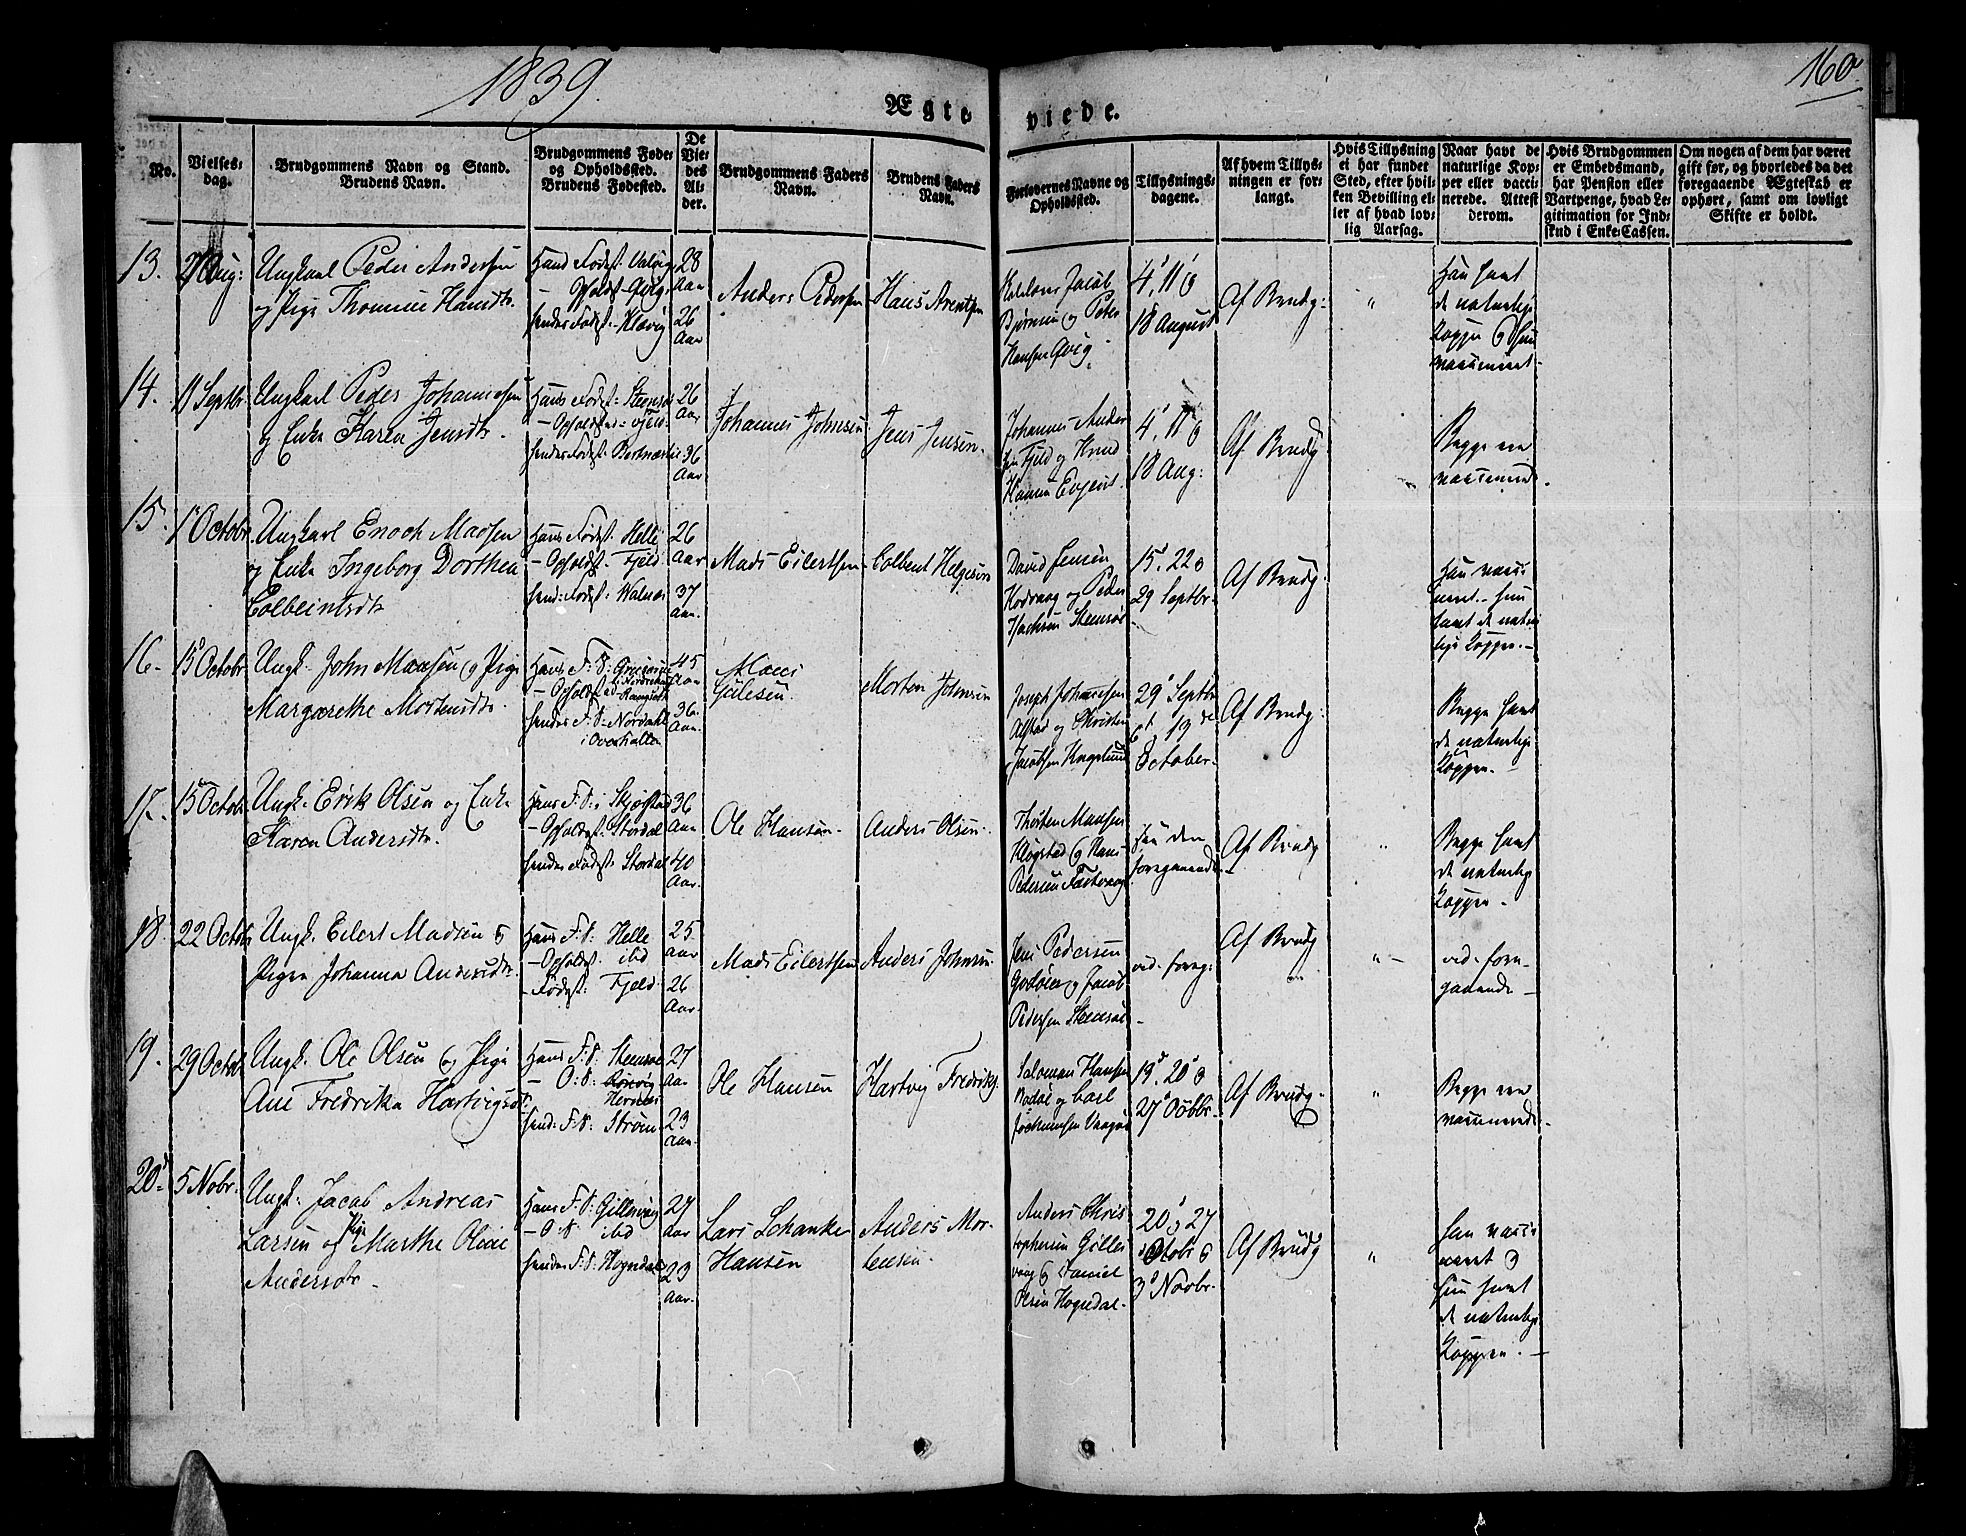 1839.
160
Ægteviede.
No.
Vielses-
dag.
Brudgommens Navn og Stand.
Brudens Navn.
Brudgommens Føde-
og Opholdssted.
Brudens Fødested.
De
Vie-
des
Al-
der.
Brudgommens Faders
Navn.
Brudens Faders
Navn.
Forlovernes Navne og
Opholdssted.
Tillysnings-
dagene.
Af hvem Tillys-
ningen er for-
langt.
Hvis Tillysning
ei har fundet
Sted, efter hvil-
ken Bevilling el-
ler af hvad lov-
lig Aarsag.
Naar havt de
naturlige Kop-
per eller vacci-
nerede. Attest
derom.
Hvis Brudgommen
er Embedsmand,
har Pension eller
Vartpenge, hvad Le-
gitimation for Ind-
skud i Enke-Cassen.
Om nogen af dem har været
gift før, og hvorledes da det
føregaaende Ægteskab er
ophørt, samt om lovligt
Skifte er holdt.
13.
Aug:
Ungkarl Peder Andersen
og Pige Thomine Hansdtr.
Hans Fødest:
- Opholdst.
hendes Fødest.
28
Aar
26
Aar
Anders Pedersen
Hans Arentsen
Jacob
og Peter
Hansen
4, 11 &
18 August
Af Brudg:
"
Han havt
de naturlige
Kopper & Hun
vaccineret.
14.
11 Septbr
Ungkarl Peder Johannesen
og Enke Karen Jensdtr.
Hans Fødest: Steensøe
- Opholdsted: Fjeld.
hendes Fødest:
26
Aar
36
Aar
Johannes Johnsen
Jens Jensen.
Johannes Ander
sen Fjeld og Knud
Hansen
4, 11 &
18 Aug:
Af Brudg
Begge ere
vaccinerede.
15.
1 Octobr.
Ungkarl Enoch Madsen
og Enke Ingeborg Dorthea
Colbeintsdtr
Hans Fødest: Helle
- Opholdst: Fjeld
hend: Fødest: Walnes
26
Aar
37
Aar.
Mads Eilertsen
Colbent Helgesen
David Jensen
og Peder
Isachsen Steensøe
15, 22 &
29 Septbr.
Af Brudg:
Han vacci
neret - hun
havt de natur
lige Kopper.
16.
15 Octobr
Ungk. John Maasen & Pige
Margarethe Mortensdtr.
Hans F:S:
- Opholdsted
hendes F:S: Nordahl
i Overhallen
45
Aar
36.
Aar.
Gulesen
Morten Johnsen
Joseph Johannesen
Alstad og Christen
Jacobsen
29 Septbr
6t., 13de
October.
Af Brudg:
Begge havt
de naturlige
Kopper.
17.
15 Octobr
Ungk. Erik Olsen og Enke
Karen Andersdtr.
Hans F:S: i Skjæstad
- Opholdst. Stordal
hendes Fødest: Stordal
36
Aar
40
Aar.
Ole Hansen.
Anders Olsen.
Thosten Maasen
Kløgstad & Hans
Pedersen
den
foregaaende
Af Brudg
"
Begge havt
de naturlige
Kopper.
18.
22 Octobr
Ungk. Eilert Madsen &
Pigen Johanna Andersdtr.
Hans F:S: Helle
- Opholdst. ibd
- Fødest: Fjeld.
25
Aar
26
Aar.
Mads Eilertsen
Anders Johnsen
Jens Pedersen
Godøen og Jacob
Pedersen Steensøe
vid. foreg:
Af Brudg
"
vid. fore-
gaaende
19.
29 Octobr
Ungk. Ole Olsen & Pige
Ane Fredrika Hartvigsdtr.
Hans F:S: Steensøe
- O:S:
Hernes
hend: F:S: Strøm.
27
Aar
23
Aar.
Ole Hansen
Hartvig Fredriks.
Salomon Hansen
Bodøe og Carl
Jochumsen Vaagøe
19, 20 &
27 Octbr.
Af Brudg.
"
Begge ere
vaccinerede.
20.
5 Nobr.
Ungk. Jacob Andreas
Larsen og Pige Marthe Olive
Andersdtr.
Hans F:S: Gillesvog
- O:S ibd
hendes F:S: Hogndal
27
Aar
23
Aar.
Lars Schanke
Hansen
Anders Mor-
tensen.
Anders Chris
tophersen Gilles
vaag & Daniel
Olsen Hogndal.
20 & 27
Octobr &
3 Novbr.
Af Brudg
"
Han vacci
neret &
hun havt
de naturlige
Kopper.